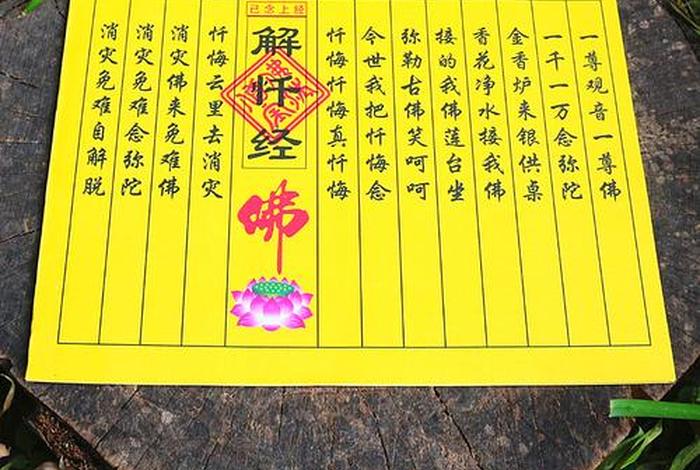 一尊观音一尊佛
一千一万念弥陀
金香炉来银供桌
香花净水接我佛
接的我佛莲台坐
弥勒古佛笑呵呵
今世我把忏悔念
忏悔忏悔真忏悔
已念上经
解忏经
佛
忏悔云里去消灾
消灾佛来免难佛
消灾免难念弥陀
消灾免难自解脱